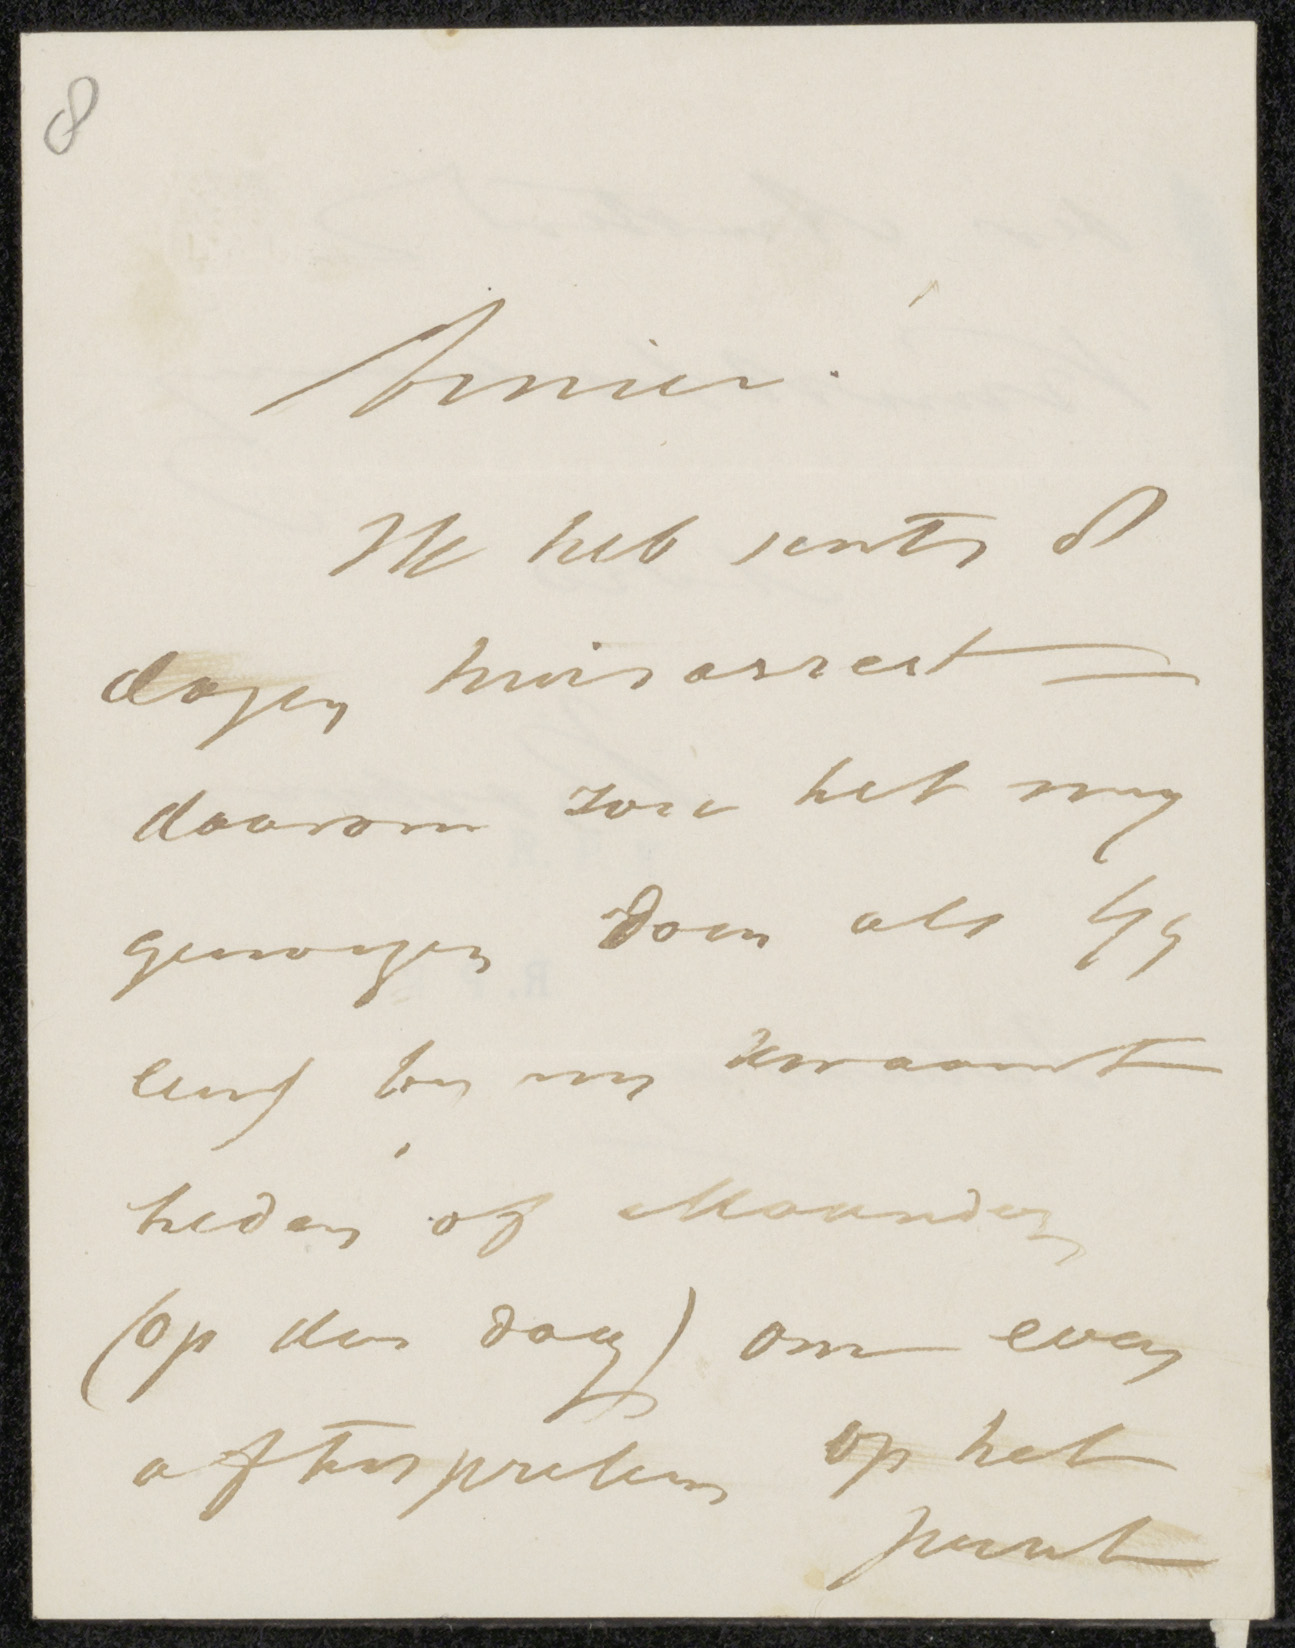 8
Amice.
Ik heb sents 8
dagen huisarrest —
daarom zou het my
genoegen doen als Gy
eens by my kwaamt
heden of Maandag
(op den dag) om even
aftespreken op het
punt